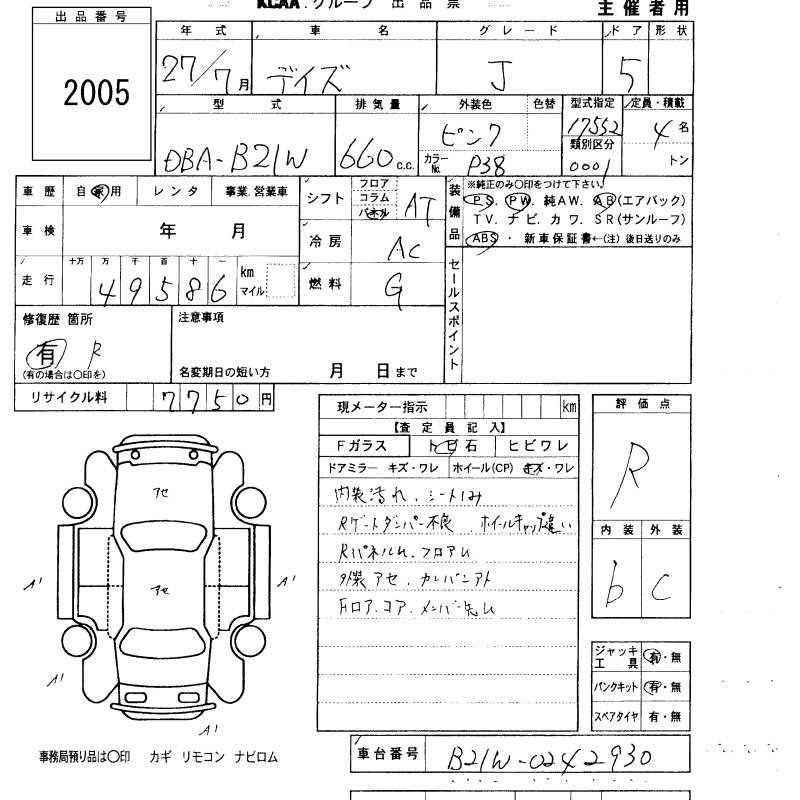 KCAA.グループ 出品票
主催者用
出品番号
2005
年式 車名 グレード ドア 形状
27/7月 デイズ J 5
型式 排気量 外装色 色替 型式指定 定員・積載
DBA-B21W 660 c.c. ピンク 17552 4名
カラーNo. P38 類別区分 0001 トン
車歴 自家用 レンタ 事業.営業車
シフト フロア コラム パネル AT
装備品
※純正のみ〇印をつけて下さい。
PS. PW. 純AW. AB(エアバック)
TV. ナビ. カワ. SR(サンルーフ)
ABS ・ 新車保証書←(注)後日送りのみ
車検 年 月
冷房 AC
走行 十万 万 千 百 十 一
49586 km マイル
燃料 G
セールスポイント
修復歴 箇所
有 R
(有の場合は〇印を)
注意事項
名変期日の短い方 月 日まで
リサイクル料 7750円
現メーター指示 km
【査定員記入】
Fガラス トビ石 ヒビワレ
ドアミラー キズ・ワレ ホイール(CP) キズ・ワレ
内装汚れ、シートしみ
Rゲートダンパー不良 ホイールキャップ違い
RパネルW、フロアW
外装アセ、カンバンアト
Fロア.コア.メンバー先W
評価点
R
内装 外装
b C
アセ
アセ
A'
A'
A'
A'
ジャッキ工具 有・無
パンクキット 有・無
スペアタイヤ 有・無
事務局預り品は〇印 カギ リモコン ナビロム
車台番号 B21W-0242930